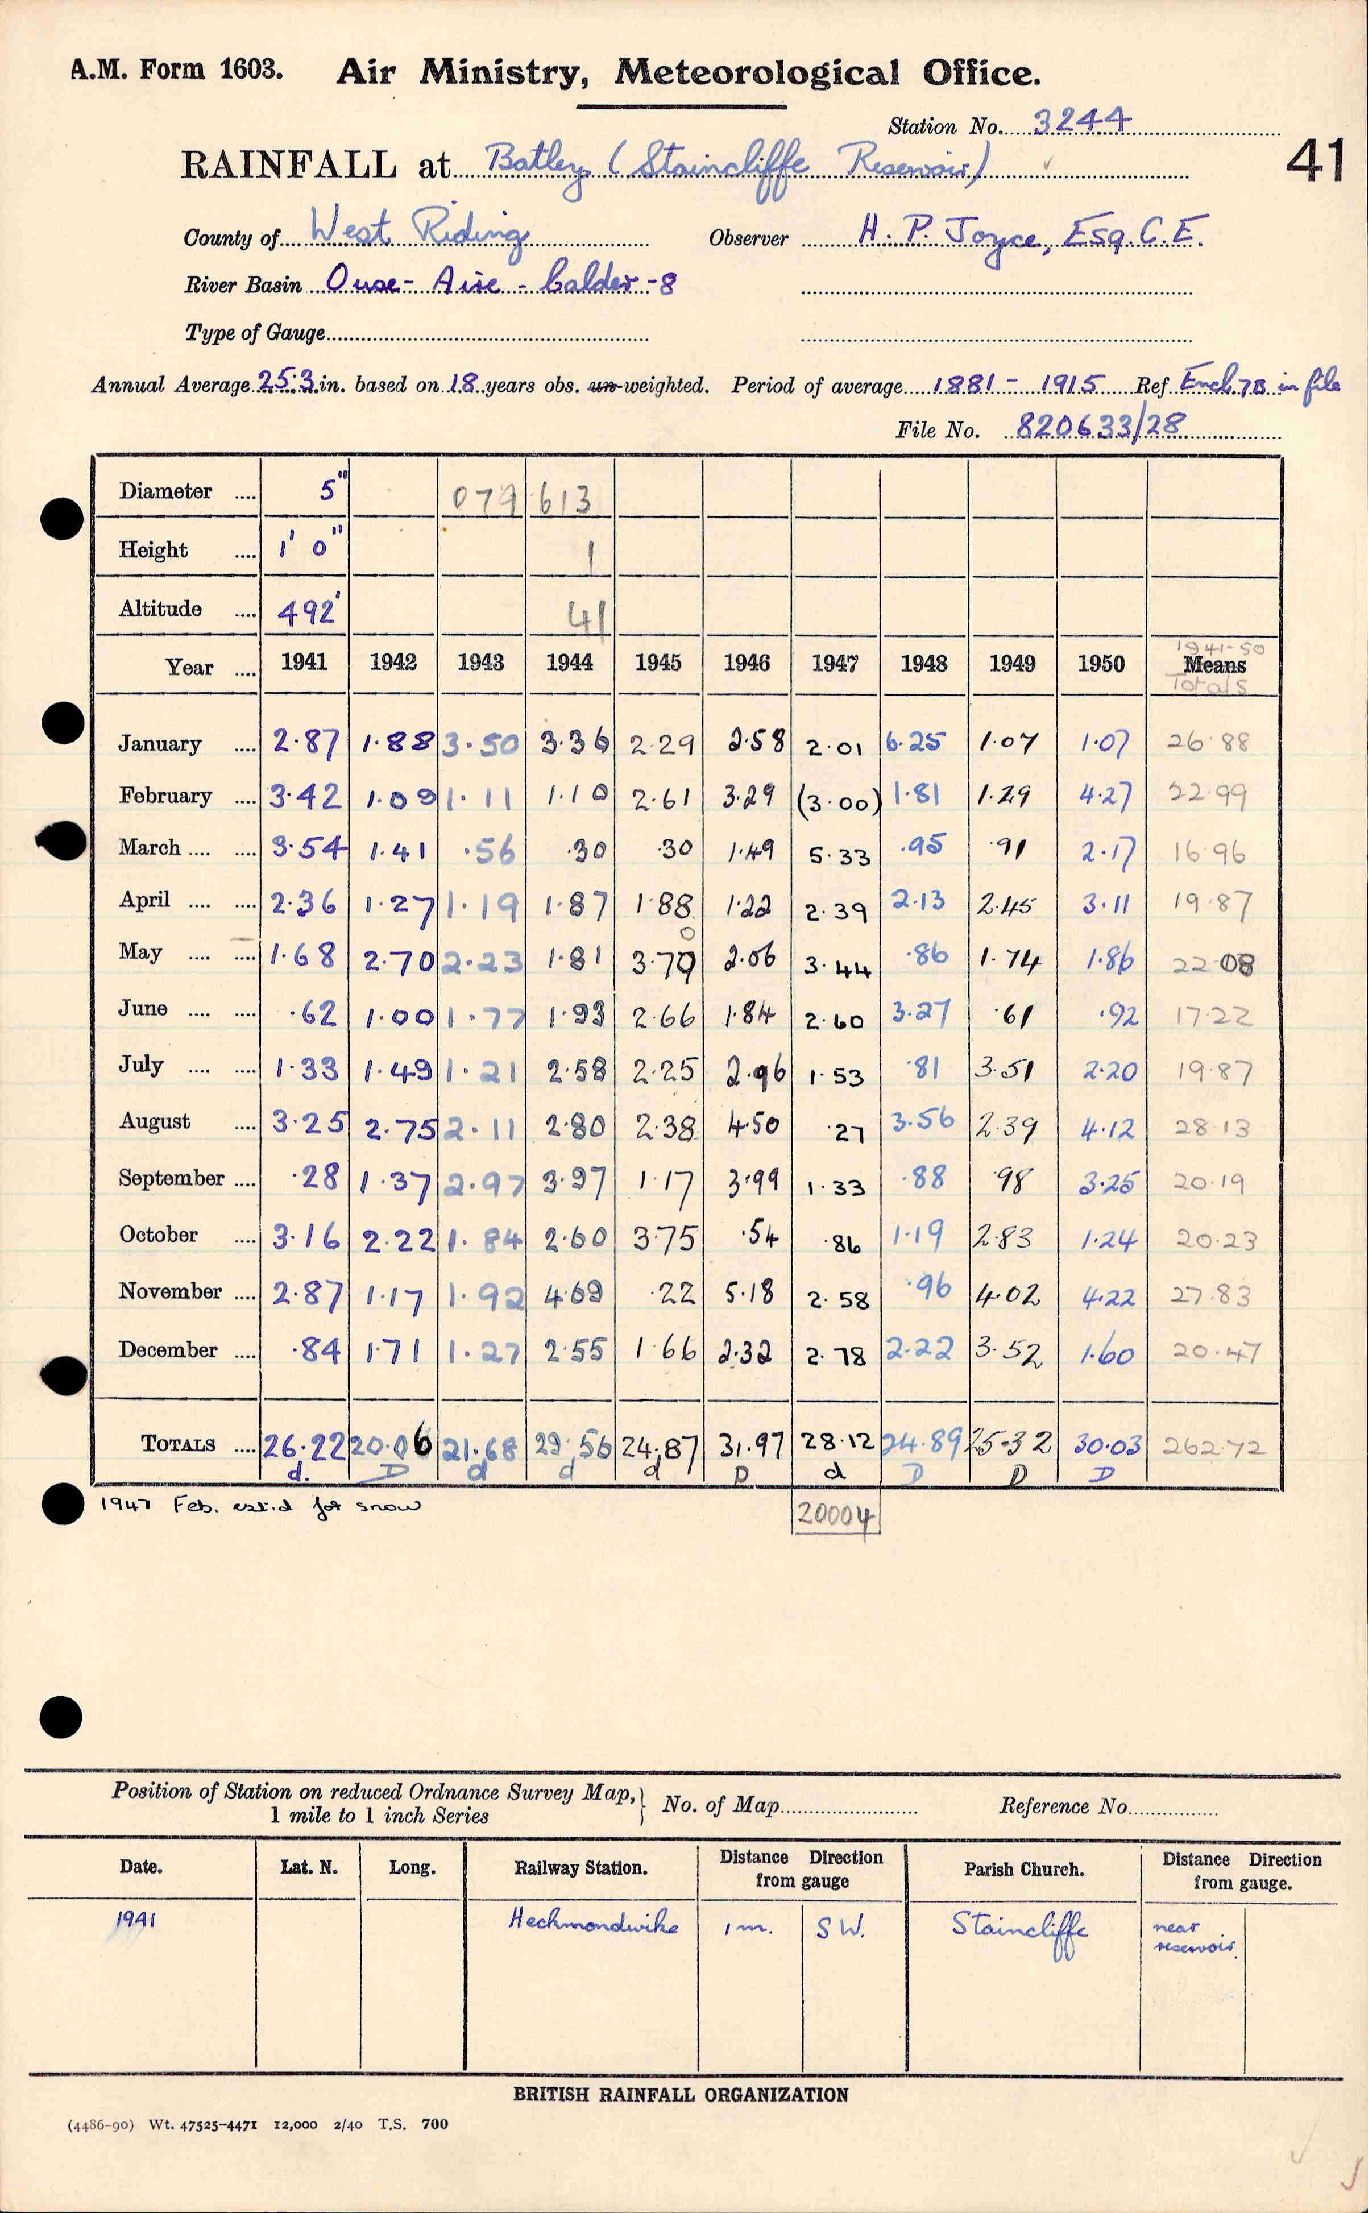 A.M. Form 1603. Air Ministry, Meteorological Office.
Station No. 3244
RAINFALL at Batley (Staincliffe Reservoir) 41
County of West Riding Observer H. P. Joyce, Esq. C.E.
River Basin Ouse - Aire - Calder - 8
Type of Gauge
Annual Average 25.3 in. based on 18 years obs. un-weighted. Period of average 1881 - 1915 Ref Encl. 7B in file
File No. 820633/28
Diameter .... 5" 079 613
Height .... 1' 0" 1
Altitude .... 492' 41
1941-50
Year .... 1941 1942 1943 1944 1945 1946 1947 1948 1949 1950 Means
Totals
January .... 2.87 1.88 3.50 3.36 2.29 2.58 2.01 6.25 1.07 1.07 26.88
February .... 3.42 1.09 1.11 1.10 2.61 3.29 (3.00) 1.81 1.29 4.27 22.99
March .... .... 3.54 1.41 .56 .30 .30 1.49 5.33 .95 .91 2.17 16.96
April .... .... 2.36 1.27 1.19 1.87 1.88 1.22 2.39 2.13 2.45 3.11 19.87
0
May .... .... 1.68 2.70 2.23 1.81 3.70 2.06 3.44 .86 1.74 1.86 22.08
June .... .... .62 1.00 1.77 1.93 2.66 1.84 2.60 3.27 .61 .92 17.22
July .... .... 1.33 1.49 1.21 2.58 2.25 2.96 1.53 .81 3.51 2.20 19.87
August .... 3.25 2.75 2.11 2.80 2.38 4.50 .27 3.56 2.39 4.12 28.13
September .... .28 1.37 2.97 3.97 1.17 3.99 1.33 .88 .98 3.25 20.19
October .... 3.16 2.22 1.84 2.60 3.75 .54 .86 1.19 2.83 1.24 20.23
November .... 2.87 1.17 1.92 4.69 .22 5.18 2.58 .96 4.02 4.22 27.83
December .... .84 1.71 1.27 2.55 1.66 2.32 2.78 2.22 3.52 1.60 20.47
TOTALS .... 26.22 20.06 21.68 29.56 24.87 31.97 28.12 24.89 25.32 30.03 262.72
d. D d d d D d D D D
1947 Feb. est.d for snow 20004
Position of Station on reduced Ordnance Survey Map, } No. of Map Reference No.
1 mile to 1 inch Series
Date. Lat. N. Long. Railway Station. Distance Direction from gauge Parish Church. Distance Direction from gauge.
1941 Heckmondwike 1 m. S W. Staincliffe near reservoir.
BRITISH RAINFALL ORGANIZATION
(4486-90) Wt. 47525-4471 12,000 2/40 T.S. 700